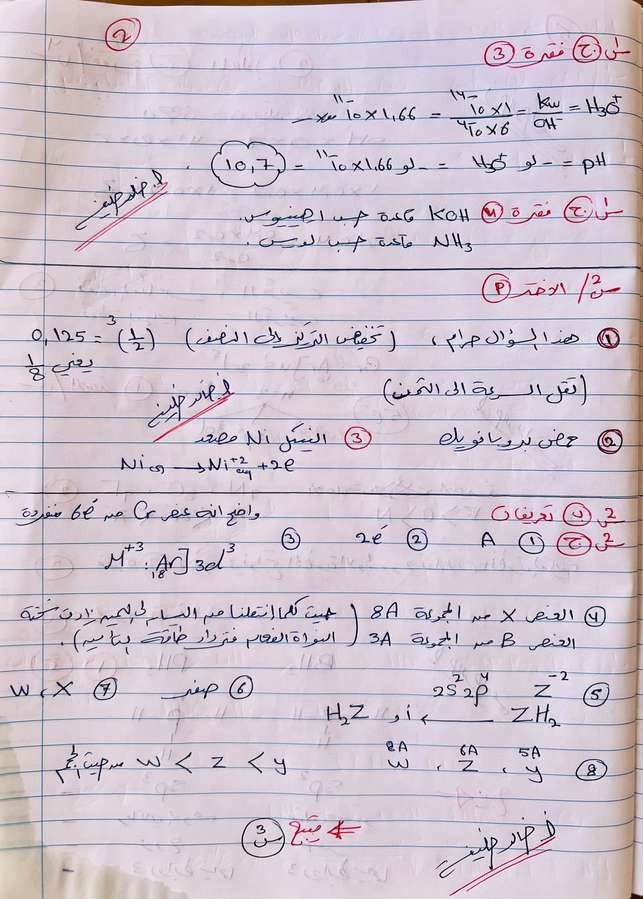 2
س١ ج فقرة 3
H3O+ = Kw/OH- = 1×10-14 / 6×10-4 = 1,66×10-11
pH = - لو H3O+ = - لو 1,66×10-11 = 10,7
أ. خالد خليفة
س١ ج فقرة 4 KOH قاعدة حسب ارهينيوس.
NH3 قاعدة حسب لويس.
س2/ الاختر P
1 هذا السؤال حرام، (تخفيض التركيز إلى النصف) (1/2)3 = 0,125
يعني 1/8
(تقل السرعة الى الثمن)
أ. خالد خليفة
2 حمض بروبانويك 3 النيكل Ni مصعد
Ni(s) → Ni+2 aq + 2e
س2 ب تعريفات
واضح انه عنصر Cr من 6e- منفردة
س2 ج 1 A 2 2e- 3
M+3 : 18Ar] 3d3
4 العنصر X من المجموعة 8A (حيث كلما انتقلنا من اليسار الى اليمين زادت شحنة
العنصر B من المجموعة 3A النواة الفعالة فتزداد طاقة التأين).
5 Z-2 2s2 2p4 6 صفر 7 W، X
ZH2 أو H2Z
8 5A y ، 6A Z ، 8A W W < Z < y من حيث الحجم
أ. خالد خليفة
يتبع س3